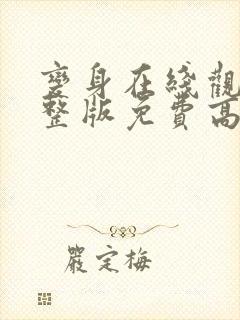 變身在綫觀
整版免費高
嚴定梅